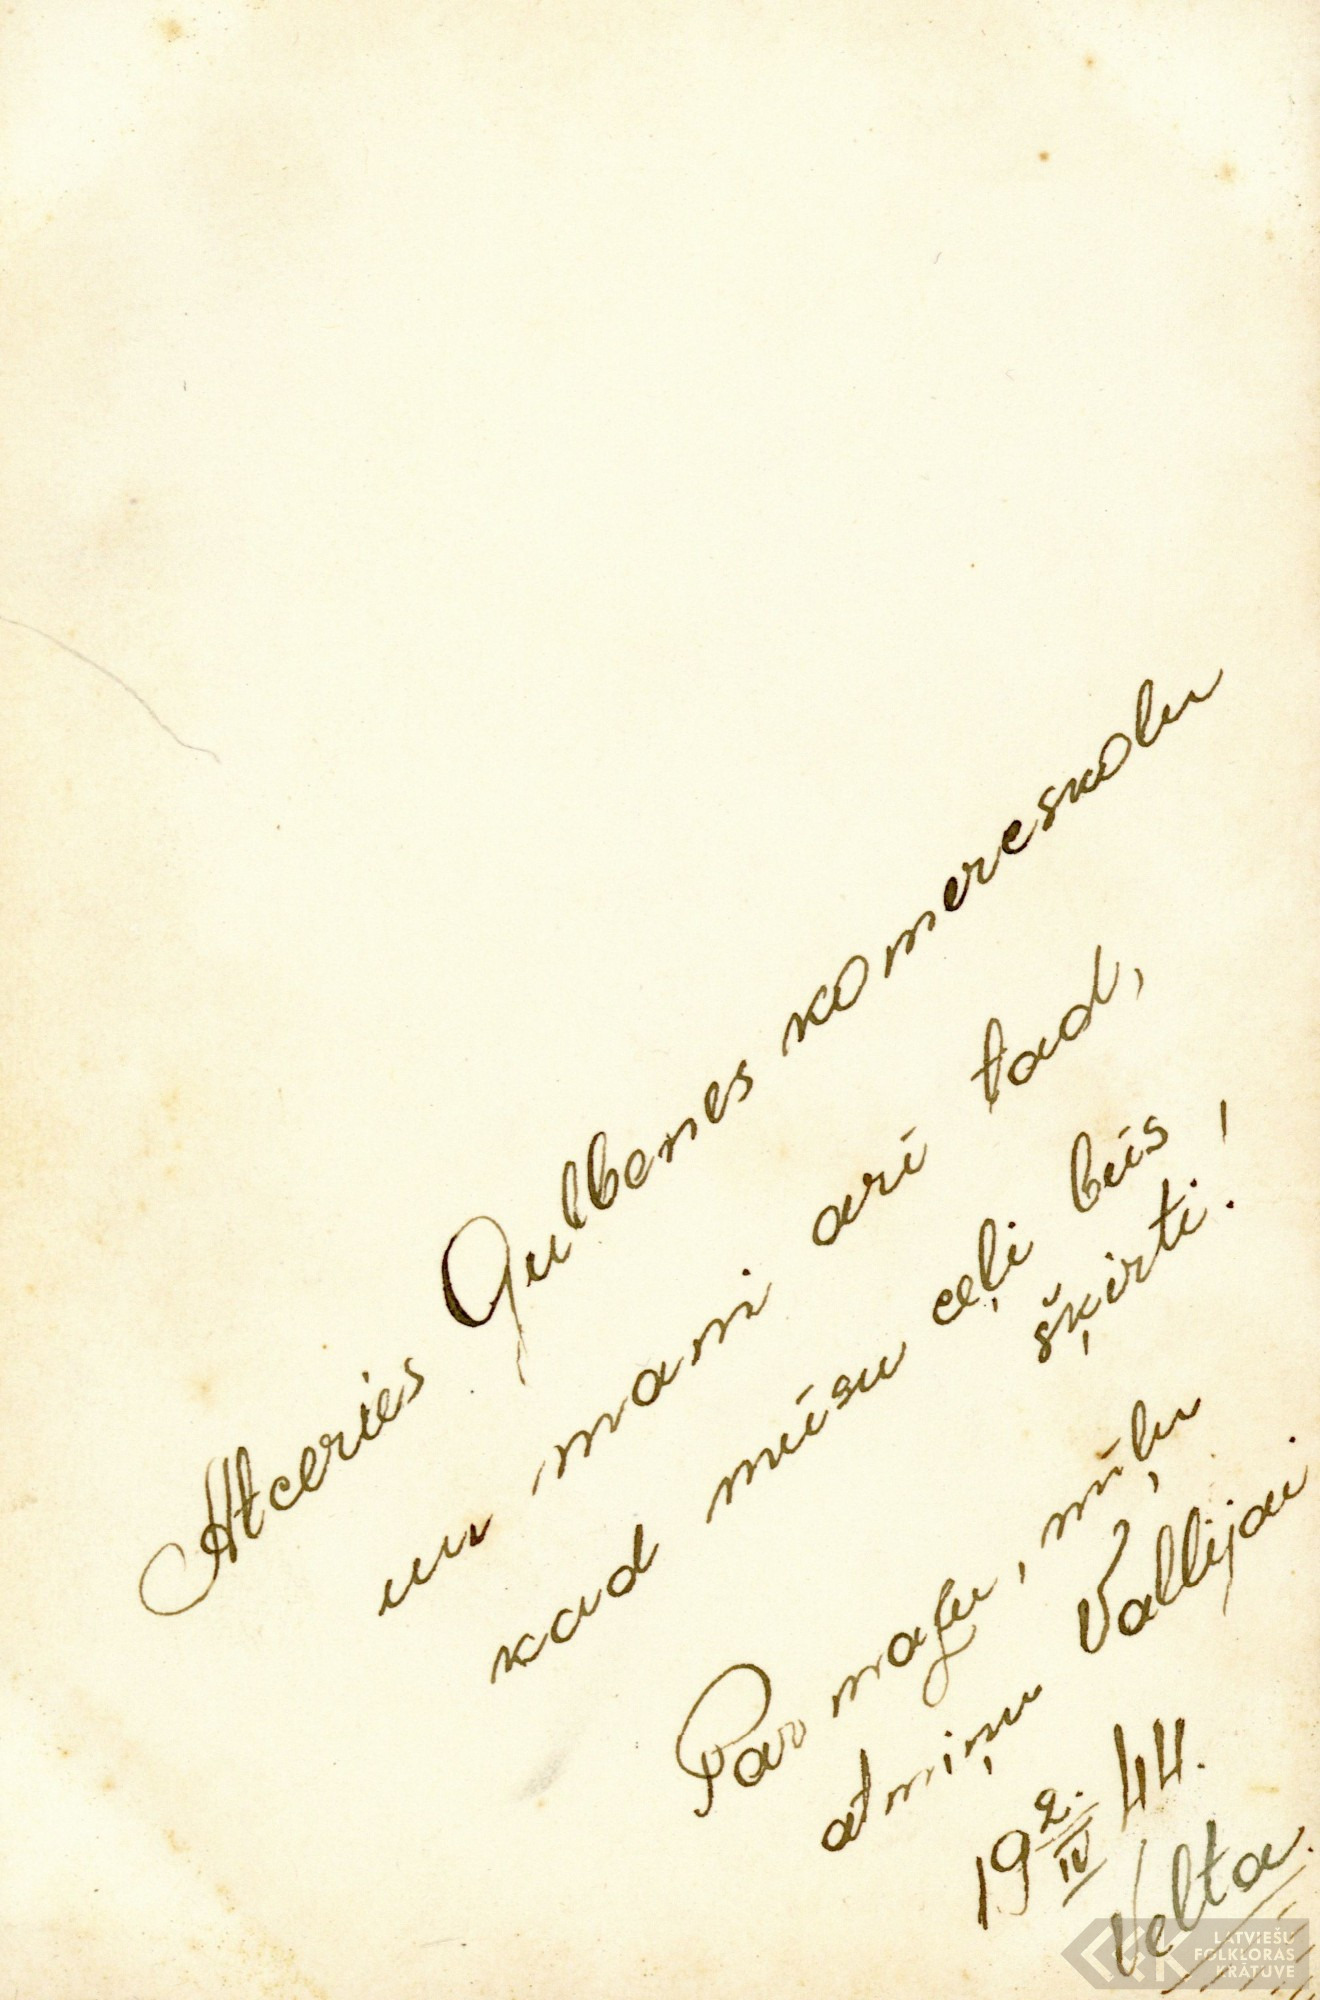 Atceries Gulbenes komercskolu
un mani arī tad,
kad mūsu ceļi būs
šķirti!
Par mazu, mīļu
atmiņu Vallijai
19 2./IV 44.
Velta.
LATVIEŠU
FOLKLORAS
KRĀTUVE